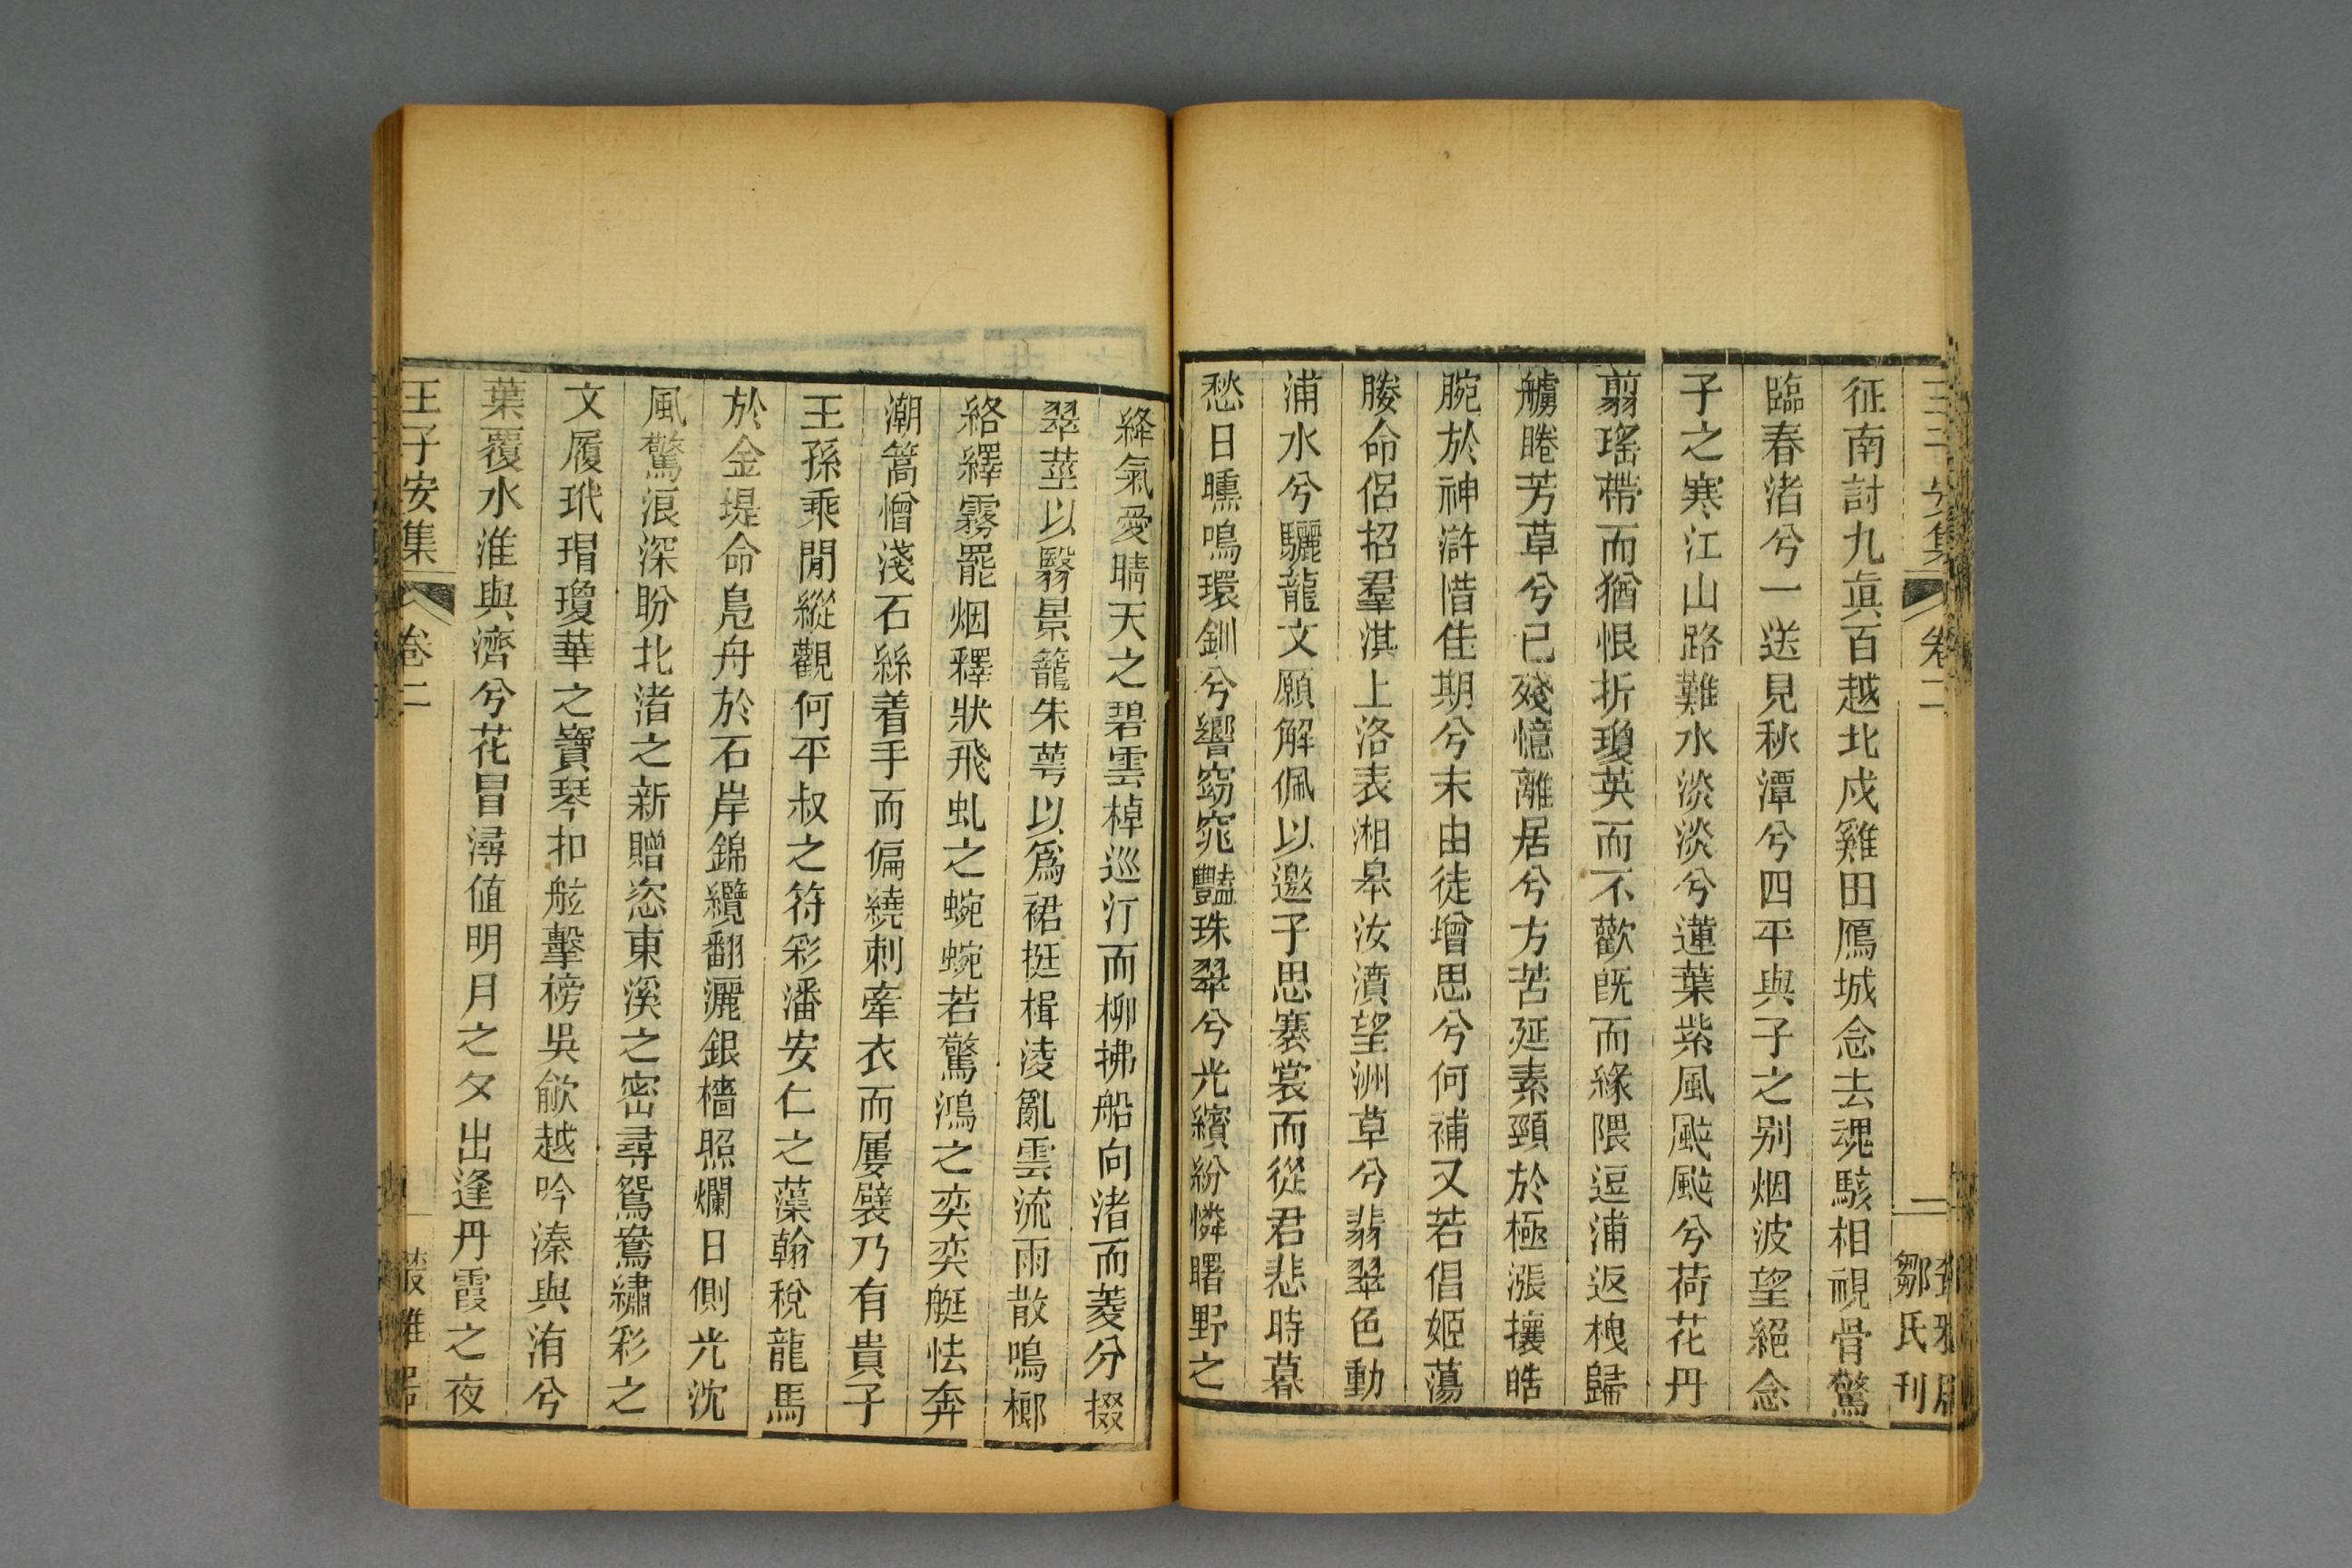 征南討九眞百越北戍雞田鴈城念去魂駭相視骨驚
臨春渚兮一送見秋潭兮四平與子之别烟波望絕念
子之寒江山路難水淡淡兮蓮葉紫風颭颭兮荷花丹
翦瑤帶而猶恨折瓊英而不歡旣而緣隈逗浦返栧歸
艫睠芳草兮已殘憶離居兮方苦延素頸於極漲攘皓
腕於神滸惜佳期兮末由徒增思兮何補又若倡姬蕩
媵命侶招羣淇上洛表湘皋汝濆望洲草兮翡翠色動
浦水兮驪龍文願解佩以邀子思褰裳而從君悲時暮
愁日曛鳴環釧兮響窈窕豔珠翠兮光繽紛憐曙野之
絳氣愛晴天之碧雲棹巡汀而柳拂船向渚而菱分掇
翠莖以翳景籠朱萼以爲裙挺楫淩亂雲流雨散鳴榔
絡繹霧罷烟釋狀飛虬之蜿蜿若驚鴻之奕奕艇怯奔
潮篙憎淺石絲着手而偏繞刺牽衣而屢襞乃有貴子
王孫乘閒縱觀何平叔之符彩潘安仁之藻翰稅龍馬
於金堤命鳧舟於石岸錦纜翻灑銀檣照爛日側光沈
風驚浪深盼北渚之新贈恣東溪之密尋鴛鴦繡彩之
文履玳瑁瓊華之寶琴扣舷擊榜吳歈越吟溱與洧兮
葉覆水淮與濟兮花冒潯值明月之夕出逢丹霞之夜
王子安集 卷二